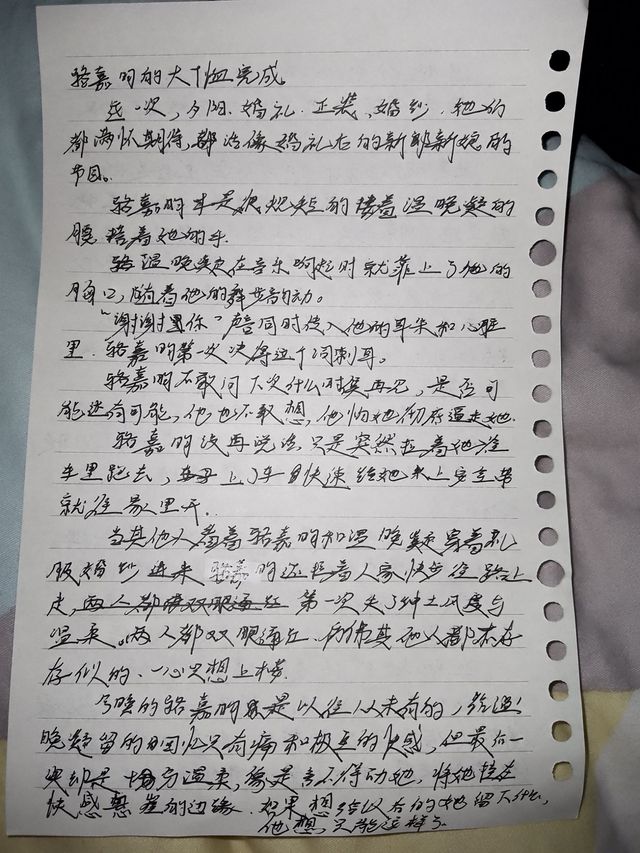 骆嘉明的大T恤完成
这一次,夕阳、婚礼、正装、婚纱,他们
都满怀期待,都活像婚礼右的新郎新娘的
节目。
骆嘉明本是很规矩的搂着温晚凝的
腰搭着她的手.
温晚凝在音乐响起时就靠上了他的
胸口,随着他的舞步韵动。
"谢谢里你"声音同时传入他的耳朵和心脏
里.骆嘉明第一次决得这个词刺耳。
骆嘉明不敢问下次什么时候再见,是否可
能还有可能,他也不敢想,他怕她彻底逼走她.
骆嘉明没再说话只是突然拉着她往
车里跑去,上了车快速给她系上安全带
就往家里开.
当其他人看着骆嘉明和温晚凝穿着礼
服婚纱进来 骆嘉明还拉着人家快步往路上
走,两人都双眼通红 第一次失了绅士风度与
温柔。两人都双眼通红.仿佛其他人都不存
存似的.一心只想上楼.
今晚的骆嘉明是以往从未有的,给温
晚凝留的回忆只有痛和极至的快感,但最后一
次却是十分温柔,像是舍不得动她,将她挂在
快感悬崖的边缘.如果想给以后的她留下什么,
他想,只能这样了.